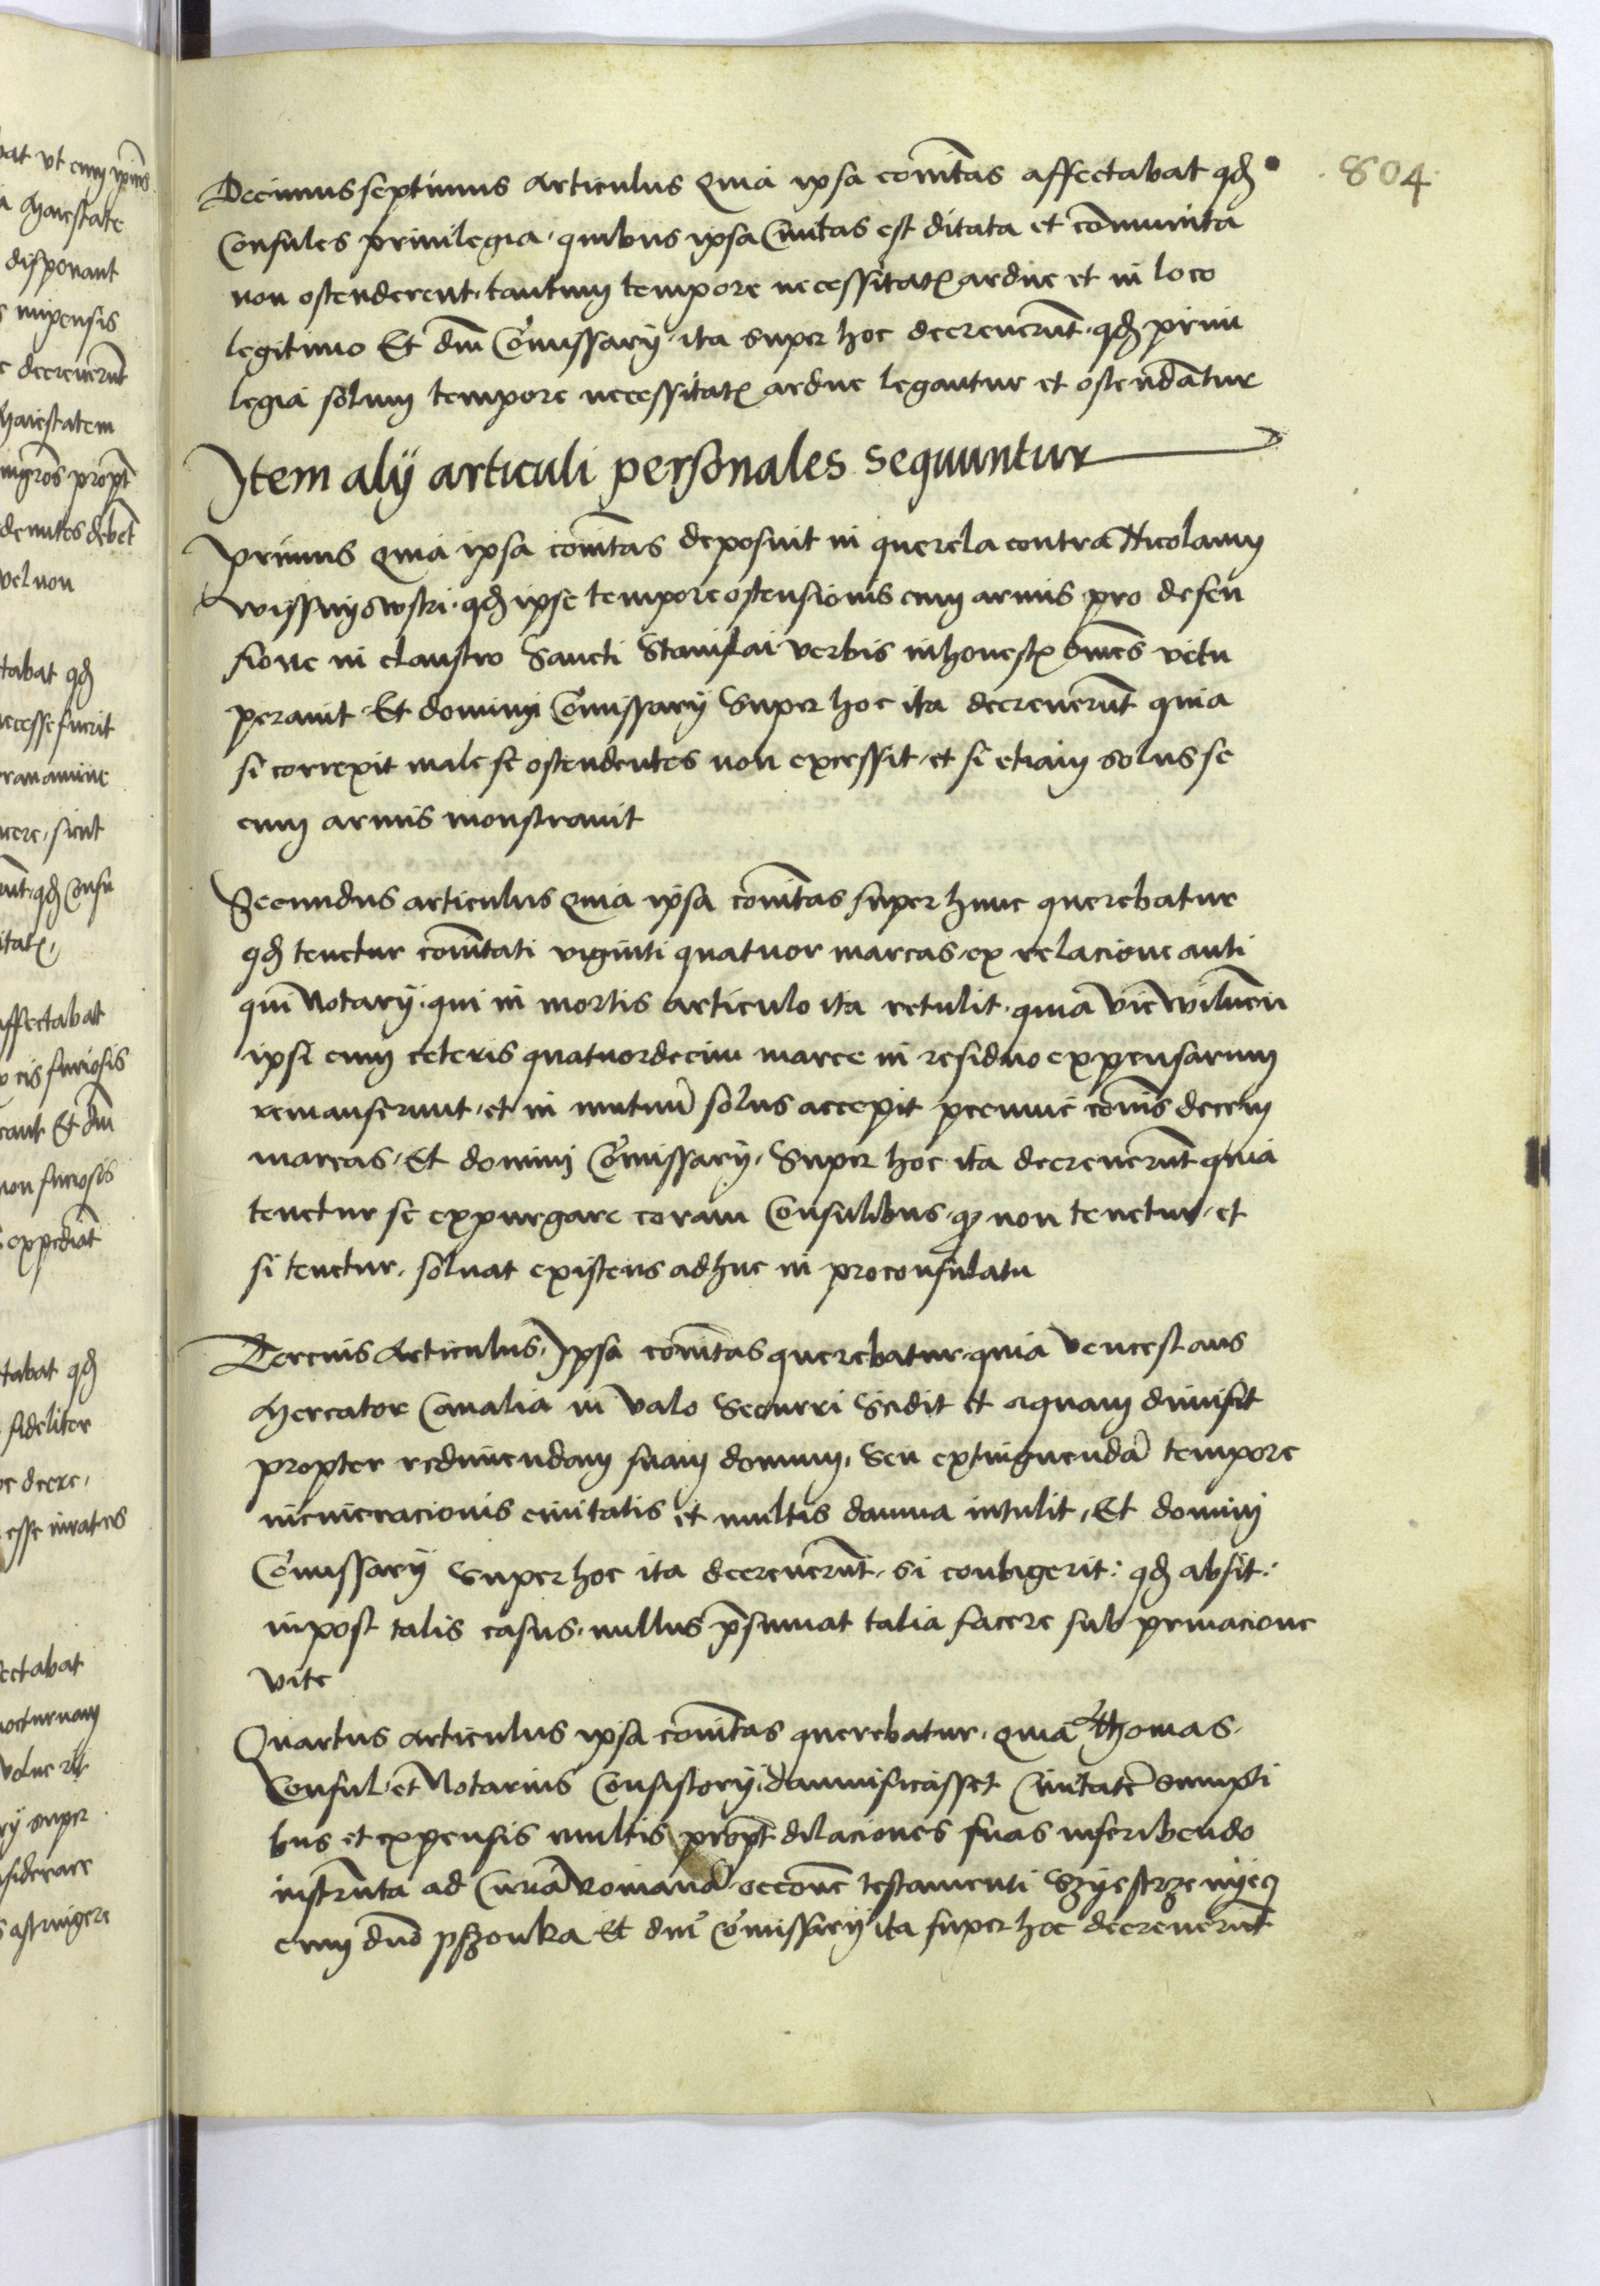 804
Decimusseptimus Articulus Quia ipsa coi̅tas affectabat qd̅
Consules priuilegia quibus ipsa Ciuitas est ditata et comunita
non ostenderent, tantum tempore necessitat̅ ardue et in loco
legitimo Et dn̅i Co̅missarÿ ita super hoc decreueru̅t qd̅ priui
legia solum tempore necessitat̅ ardue legantur et ostenda̅tur
Item alÿ articuli personales sequuntur
Primus Quia ipsa coi̅tas deposuit in querela contra Nicolaum
qd̅ ipse tempore ostensionis cum armis pro defen
sione in claustro Sancti Stanislai verbis inhonest̅ om̅es vitu
perauit Et domini Co̅missarÿ Super hoc ita decreueru̅t quia
si correxit male se ostendentes non excessit et si etiam solus se
cum armis monstrauit
Secundus articulus Quia ipsa coi̅tas super hunc querebatur
qd̅ tenetur coi̅tati viginti quatuor marcas ex relacione anti
qui Notarÿ qui in mortis articulo ita retulit quia
ipsi cum ceteris quatuordecim marce in residuo expensarum
remanserunt et in mutuu̅ solus accepit pecunie co̅is decem
marcas Et domini Co̅missarÿ Super hoc ita decreueru̅t quia
tenetur se expurgare coram Consulibus non tenetur et
si tenetur soluat existens adhuc in proconsulatu
Tercius Articulus Ipsa coi̅tas querebatur quia
Mercator Canalia in Valo Securri Scidit et aquam diuisit
propter redimendam suam domum, Seu extinguenda̅ tempore
incineracionis ciuitatis et multis damna intulit, Et domini
Co̅missarÿ Super hoc ita decreueru̅t si contigerit: qd̅ absit:
inpost talis casus nullus p̅sumat talia facere sub priuacione
vite
Quartus Articulus ipsa coi̅tas querebatur quia Thomas
Consul et Notarius Consistorÿ damnificasset Ciuitate̅ Sumpti
bus et expensis multis propt̅ dilaciones suas inscribendo
instru̅ta ad Curia̅ Romana̅ testamenti
cum dn̅o pszonka Et dn̅i Co̅missarÿ ita super hoc decreueru̅t